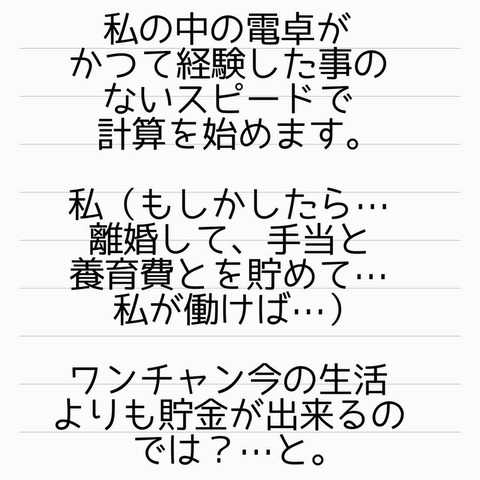 私の中の電卓が
かつて経験した事の
ないスピードで
計算を始めます。
私（もしかしたら…
離婚して、手当と
養育費とを貯めて…
私が働けば…）
ワンチャン今の生活
よりも貯金が出来るの
では？…と。